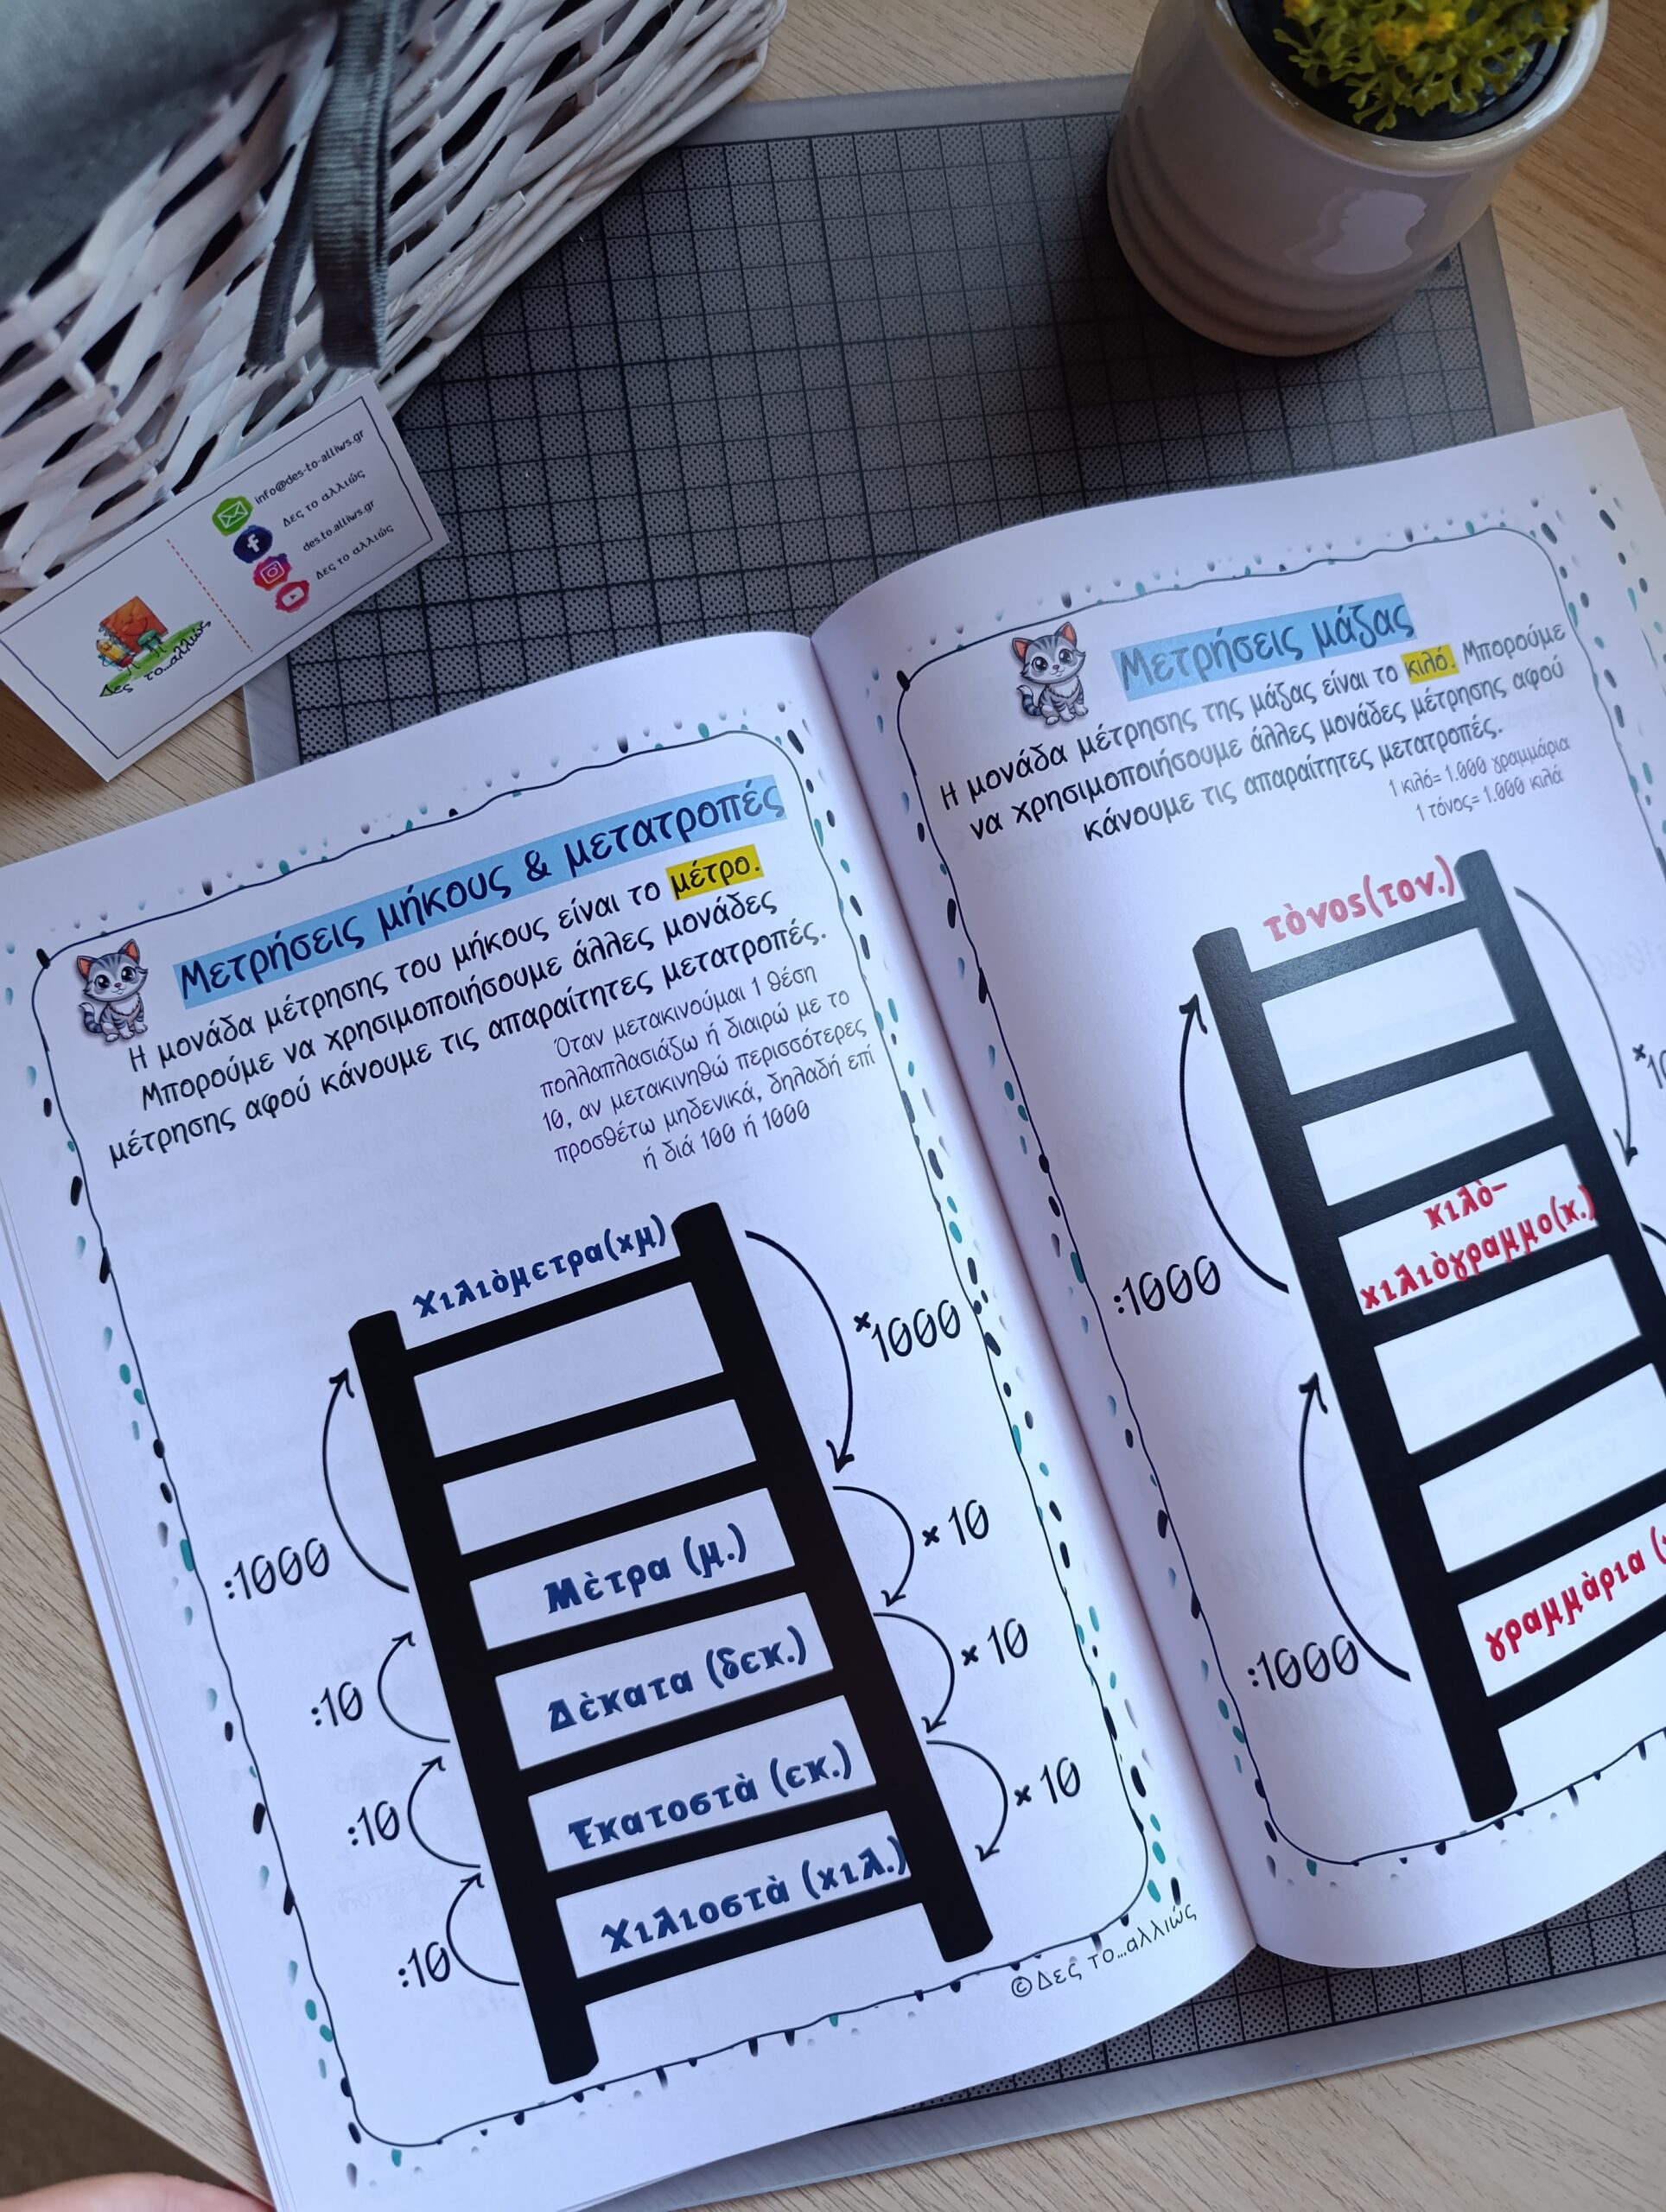 info@des-to-alliws.gr
Δες το αλλιώς
des.to.alliws.gr
Δες το αλλιώς
Δες το...αλλιώς
Μετρήσεις μήκους & μετατροπές
Η μονάδα μέτρησης του μήκους είναι το μέτρο.
Μπορούμε να χρησιμοποιήσουμε άλλες μονάδες
μέτρησης αφού κάνουμε τις απαραίτητες μετατροπές.
Όταν μετακινούμαι 1 θέση
πολλαπλασιάζω ή διαιρώ με το
10, αν μετακινηθώ περισσότερες
προσθέτω μηδενικά, δηλαδή επί
ή διά 100 ή 1000
Χιλιὸμετρα(χμ)
×1000
:1000
Μὲτρα (μ.)
×10
:10
Δὲκατα (δεκ.)
×10
:10
Ἑκατοστὰ (εκ.)
×10
:10
Χιλιοστὰ (χιλ.)
©Δες το...αλλιώς
Μετρήσεις μάζας
Η μονάδα μέτρησης της μάζας είναι το κιλό. Μπορούμε
να χρησιμοποιήσουμε άλλες μονάδες μέτρησης αφού
κάνουμε τις απαραίτητες μετατροπές.
1 κιλό= 1.000 γραμμάρια
1 τόνος= 1.000 κιλά
τὸνος(τον.)
:1000
κιλὸ-
χιλιὸγραμμο(κ.)
:1000
γραμμὰρια